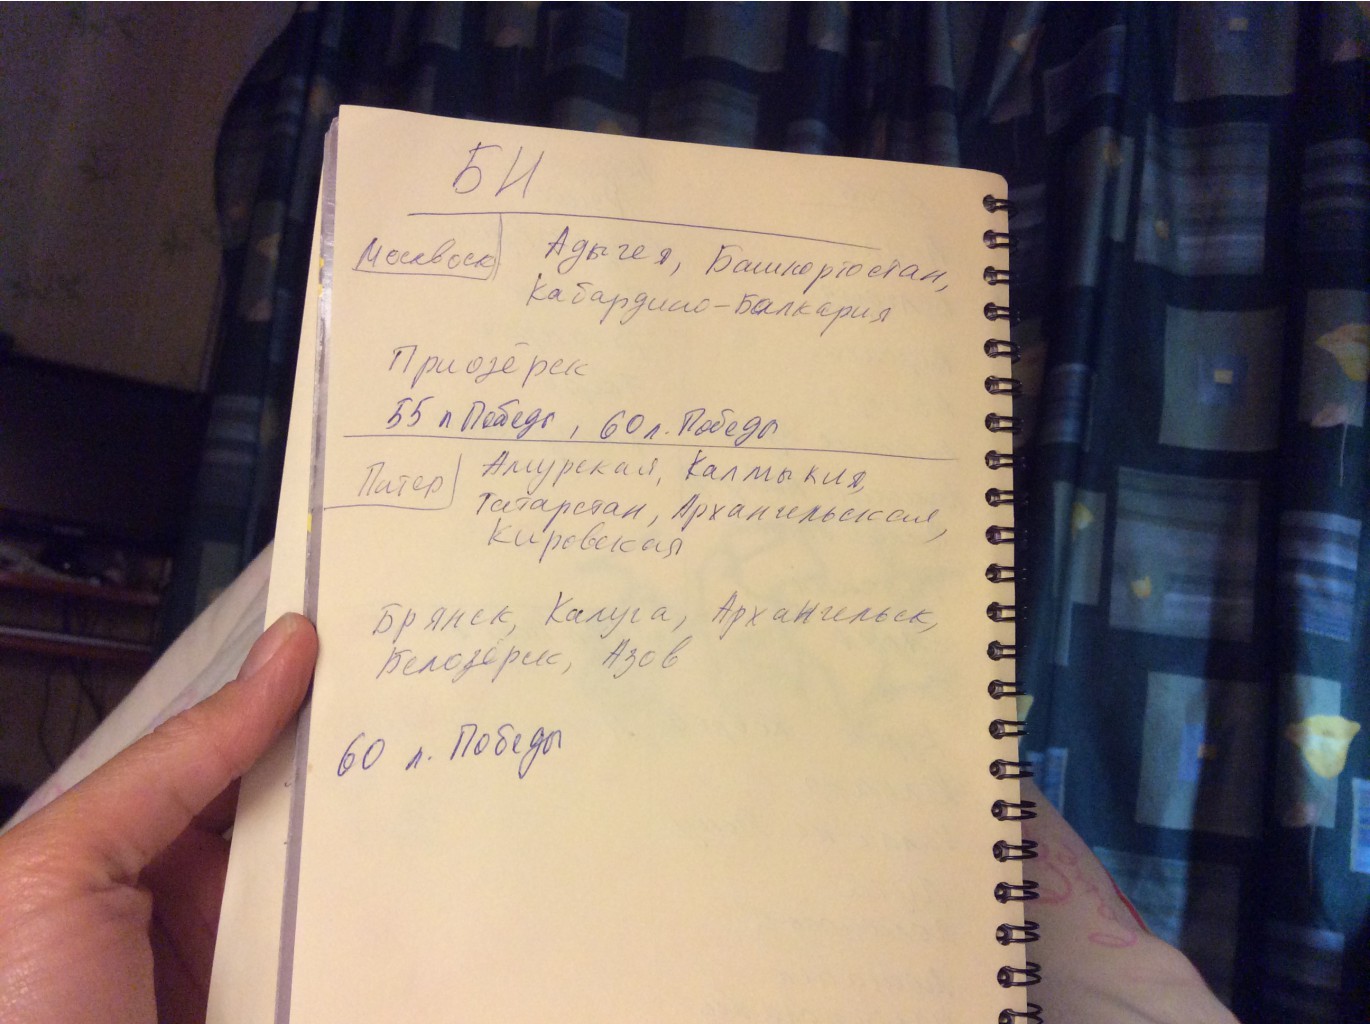 БИ
Москвоск
Адыгея, Башкортостан,
Кабардино-Балкария
Приозёрск
55 л Победы, 60 л. Победы
Питер
Амурская, Калмыкия,
Татарстан, Архангельская,
Кировская
Брянск, Калуга, Архангельск,
Белозёрск, Азов
60 л. Победы